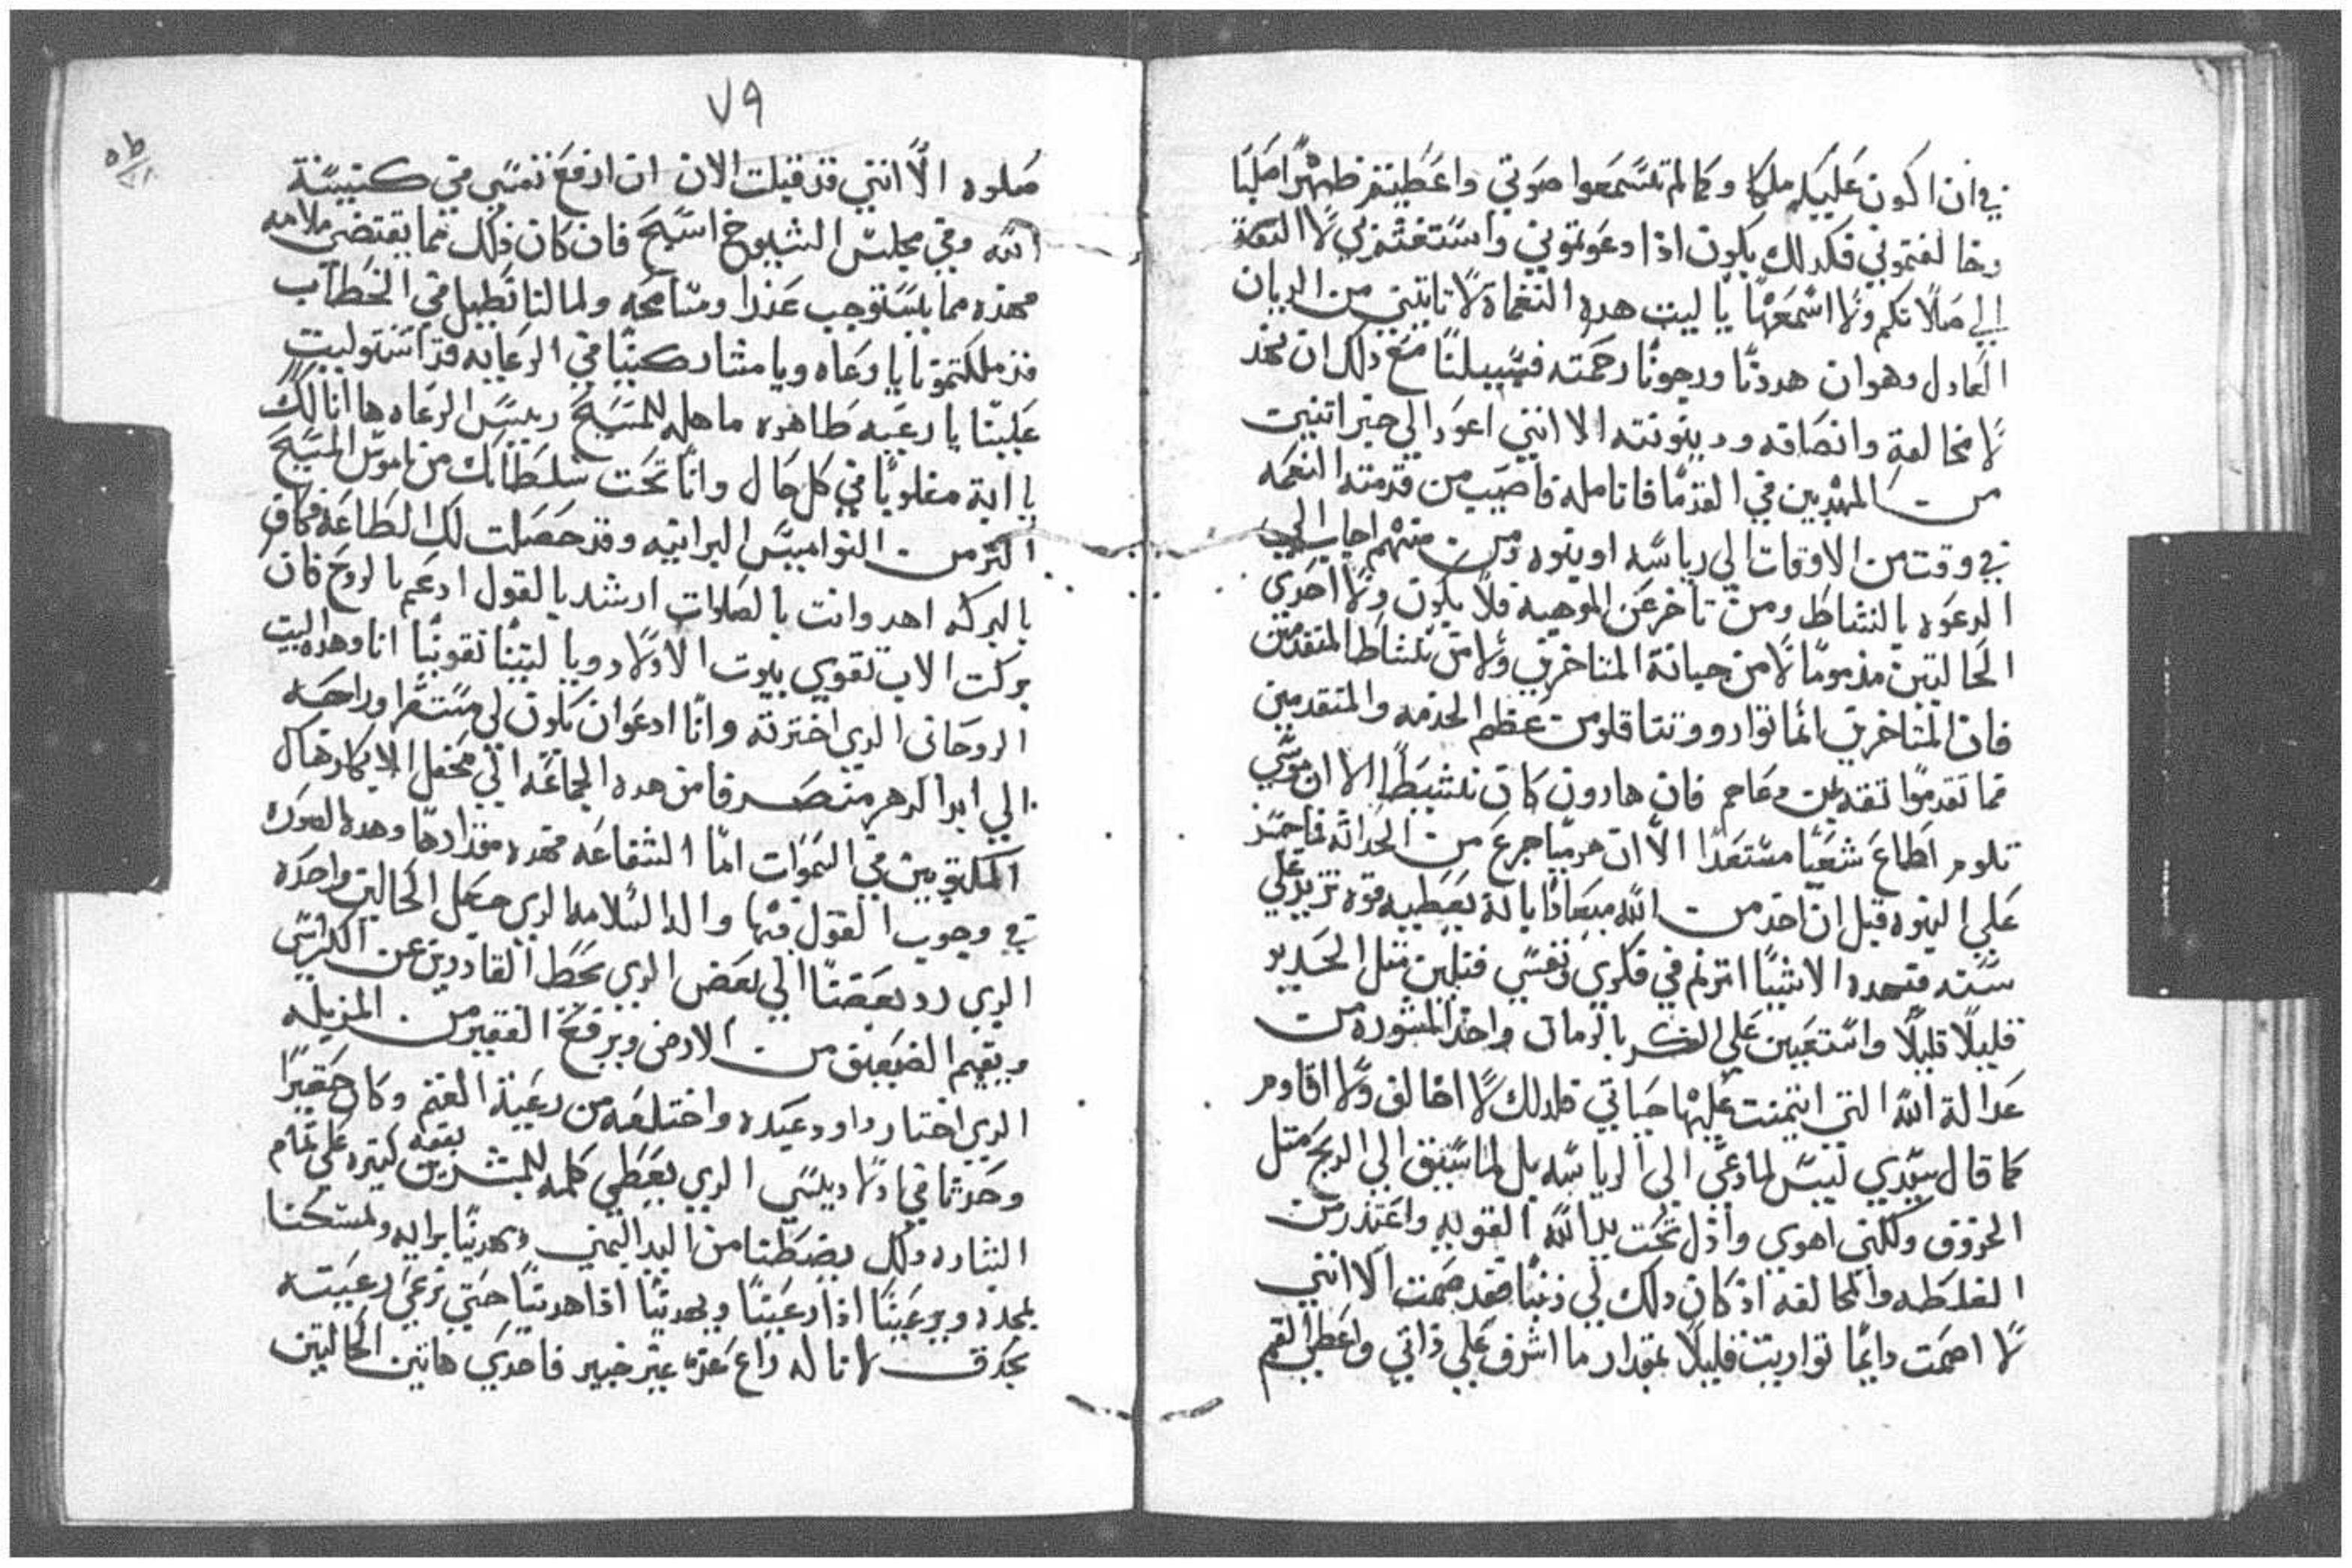 في ان اكون عليكم ملكا وكما لم تسمعوا صوتي واعطيتم ظهرًا صلبًا
وخالفتموني فكدلك يكون اذا دعوتموني واستغثتم بي لا التفة
الي صلاتكم ولا اسمعها يا ليت هده النغماة لا تاتيني من الديان
العادل وهوان هددنا ورجونا رحمته فسبيلنا مع دلك ان نحد
لا مخالفة وانصافه ودينونته الا انني اعود الي خبر اتنيت
من المهدبين في القدما فاتامله فاصيب من قدمته النعمه
في وقت من الاوقات الي رياسه او نبوه ومن منهم اجاب الي
الدعوه بالنشاط ومن تاخر عن الموهبه فلا يكون ولا احدي
الحالتين مذمومًا لا من جبانة المتاخرين ولا من نشاط المتقدمين
فان المتاخرين انما توارو وتتاقلو من عظم الخدمه والمتقدمين
فما تقدموا تقه بمن دعاهم فان هارون كان نشيطًا الا ان موسي
تلوم اطاع شعيا مستعدًا الا ان ارميا جزع من الحداثه فاجسر
علي النبوه قبل ان اخد من الله ميعادًا بانه يعطيه قوه تزيد علي
سنه فبهده الاشيا اترنم في فكري ونفسي فتلين متل الحديد
قليلًا قليلًا واستعين علي الفكر بالزمان واخد المشوره من
عدالة الله التي ايتمنت عليها حياتي فلدلك لا اخالف ولا اقاوم
كما قال سيدي ليس لما دعي الي الرياسه بل لما سيق الي الدبح متل
الخروف ولكنني اهوي وادل تحت يد الله القويه واعتذر من
الغلطه والمخالفه اد كان دلك لي ذنبًا فقد صمت الا انني
لا اصمت دايمًا تواريت قليلًا بمقدار ما اشرف علي ذاتي واعطي القم
٧٩
صلوه الا انني قد قبلت الان ان ارفع نفسي في كنيسة
الله وفي مجلس الشيوخ اسبح فان كان ذلك مما يقتضي ملامه
فهذه مما يستوجب عذرا ومسامحه ولما لنا نطيل في الخطاب
قد ملكتمونا يا رعاه ويا مشاركينا في الرعايه قد استوليت
علينا يا رعيه طاهره ماهله للمسيح رييس الرعاه ها انا لك
يا ابة مغلوبًا في كل حال وانا تحت سلطانك من ناموس المسيح
اكتر من النواميس البرانيه وقد حصلت لك الطاعه فكافي
بالبركه اهد وانت بالصلوات ارشد بالقول ادعم بالروح فان
بركت الاب تقوي بيوت الاولاد ويا ليتنا تقوينا انا وهدا البيت
الروحاني الدي اخترته وانا ادعو ان يكون لي مستقرا وراحه
الي ابد الدهر منصرفا من هده الجماعه الي محفل الابكار هناك
المكتوبين في السموات اما الشفاعه فهده مقدارها وهده الصوره
في وجوب القول فيها واله السلامه الدي جعل الحالين واحده
الدي رد بعضنا الي بعض الدي يحط القادرين عن الكراسي
ويقيم الضعيف من الارض ويرفع الفقير من المزبله
الدي اختار داود عبده واختلفه من رعية الغنم وكان حقيرًا
وحدثا في اولاد يسي الدي يعطي كلمه للمبشرين بقوه كتيره علي تمام
البشاره دلك يضبطنا من اليد اليمني ويهدينا برايه ولمسكنا
بمجده ويرعينا اذا رعينا ويهدينا اذا هدينا حتي نرعي رعيته
بحدق لا نا له راع غير خبير فاحدي هاتين الحالتين